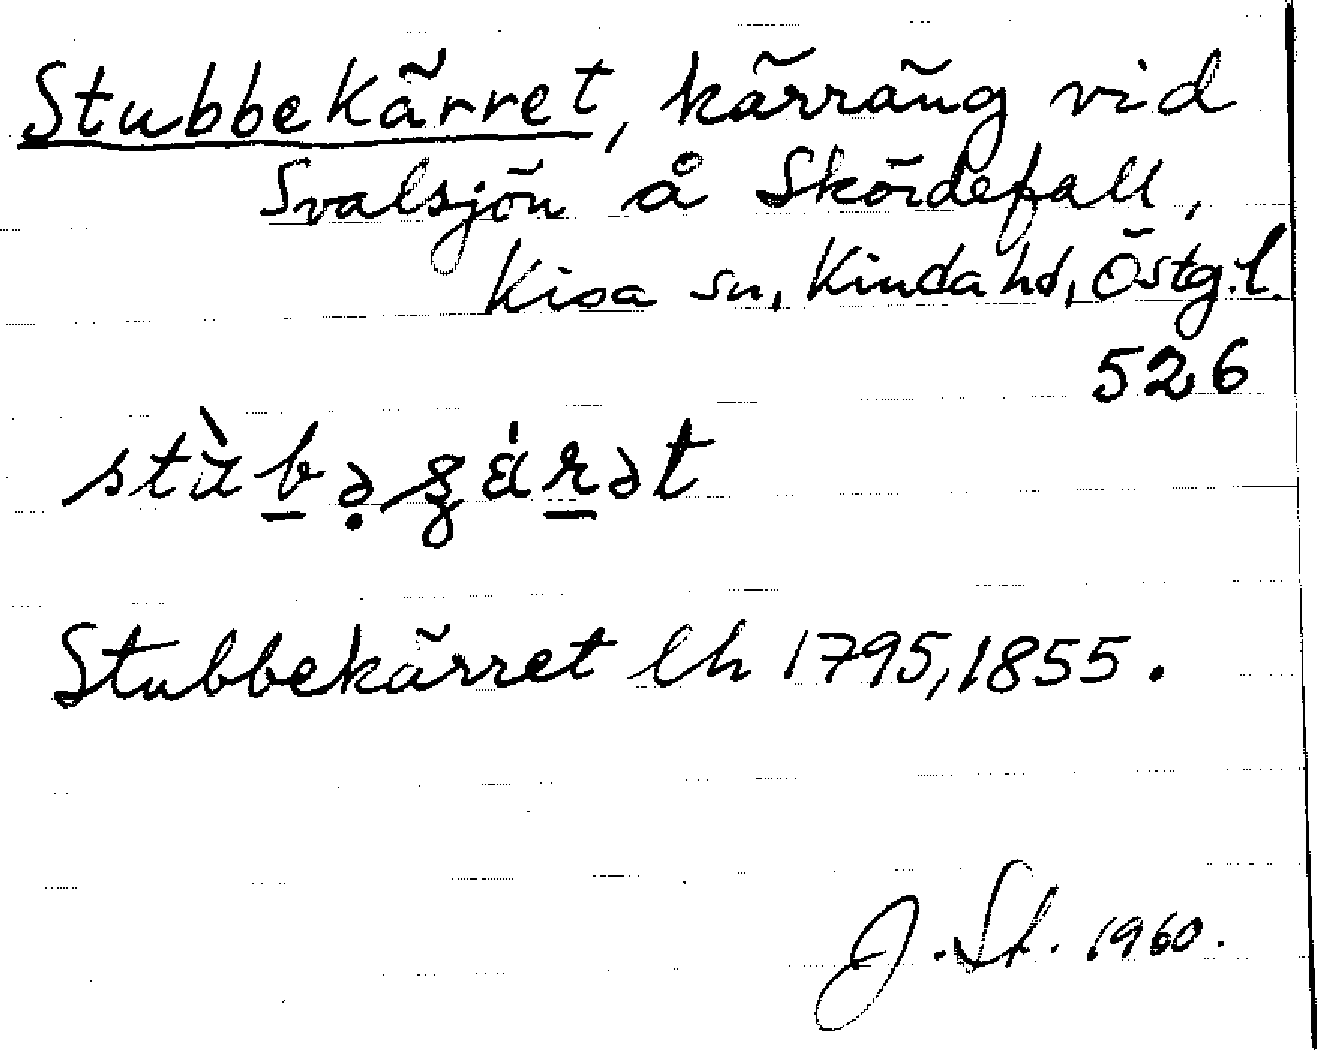 Stubbekärret, kärräng vid
Svalsjön å Skördefall,
Kisa sn, Kinda hd, Östg.l.
526
Stubbekärret lh 1795, 1855.
J. St. 1960.